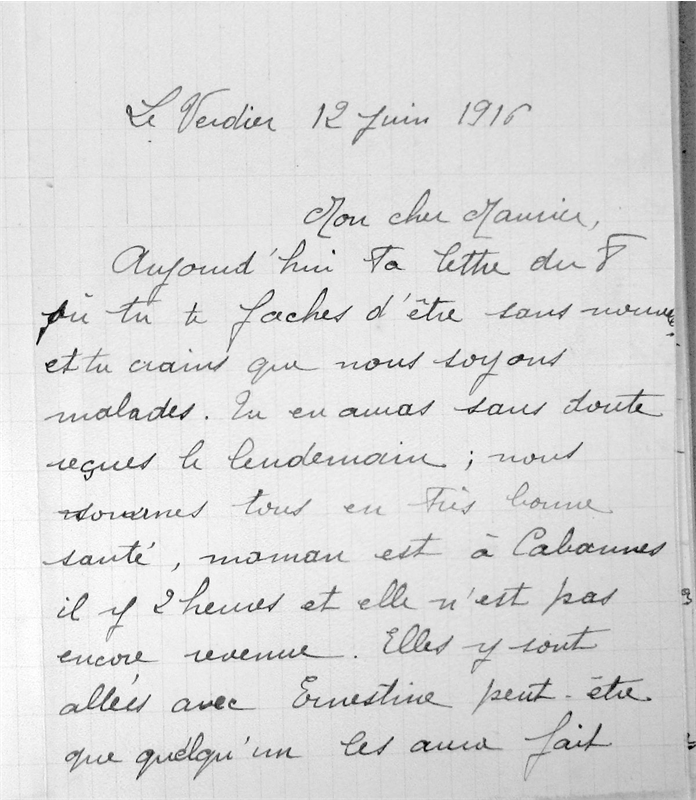 Le Verdier 12 juin 1916
Mon cher Maurice,
Aujourd'hui ta lettre du 8
où tu te faches d'être sans
et tu crains que nous soyons
malades. Tu en auras sans doute
reçues le lendemain ; nous
sommes tous en très bonne
santé, maman est à Cabannes
il y 2 heures et elle n'est pas
encore revenue. Elles y sont
allées avec Ernestine peut-être
que quelqu'un les aura fait